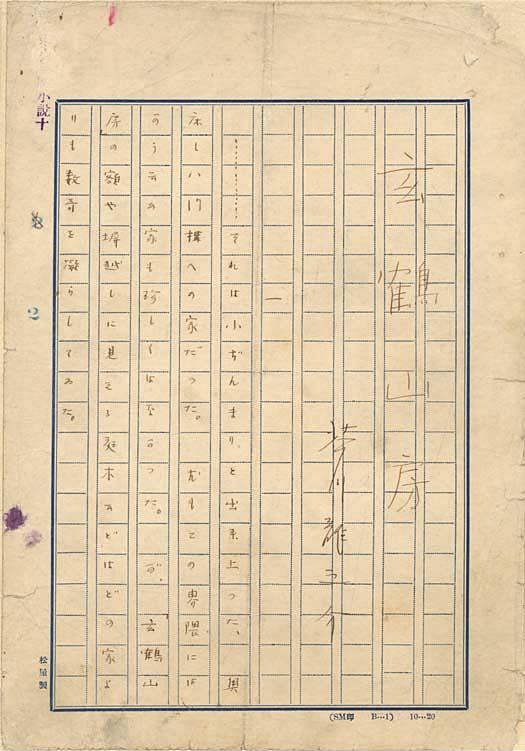 玄鶴山房
芥川龍之介
一
………それは小ぢんまりと出来上つた、奥
床しい門構への家だつた。尤もこの界隈には
かう云ふ家も珍しくはなかつた。が、「玄鶴山
房」の額や塀越しに見える庭木などはどの家よ
りも数奇を凝らしてゐた。
小説十
2
松屋製
(SM印 B…1) 10…20